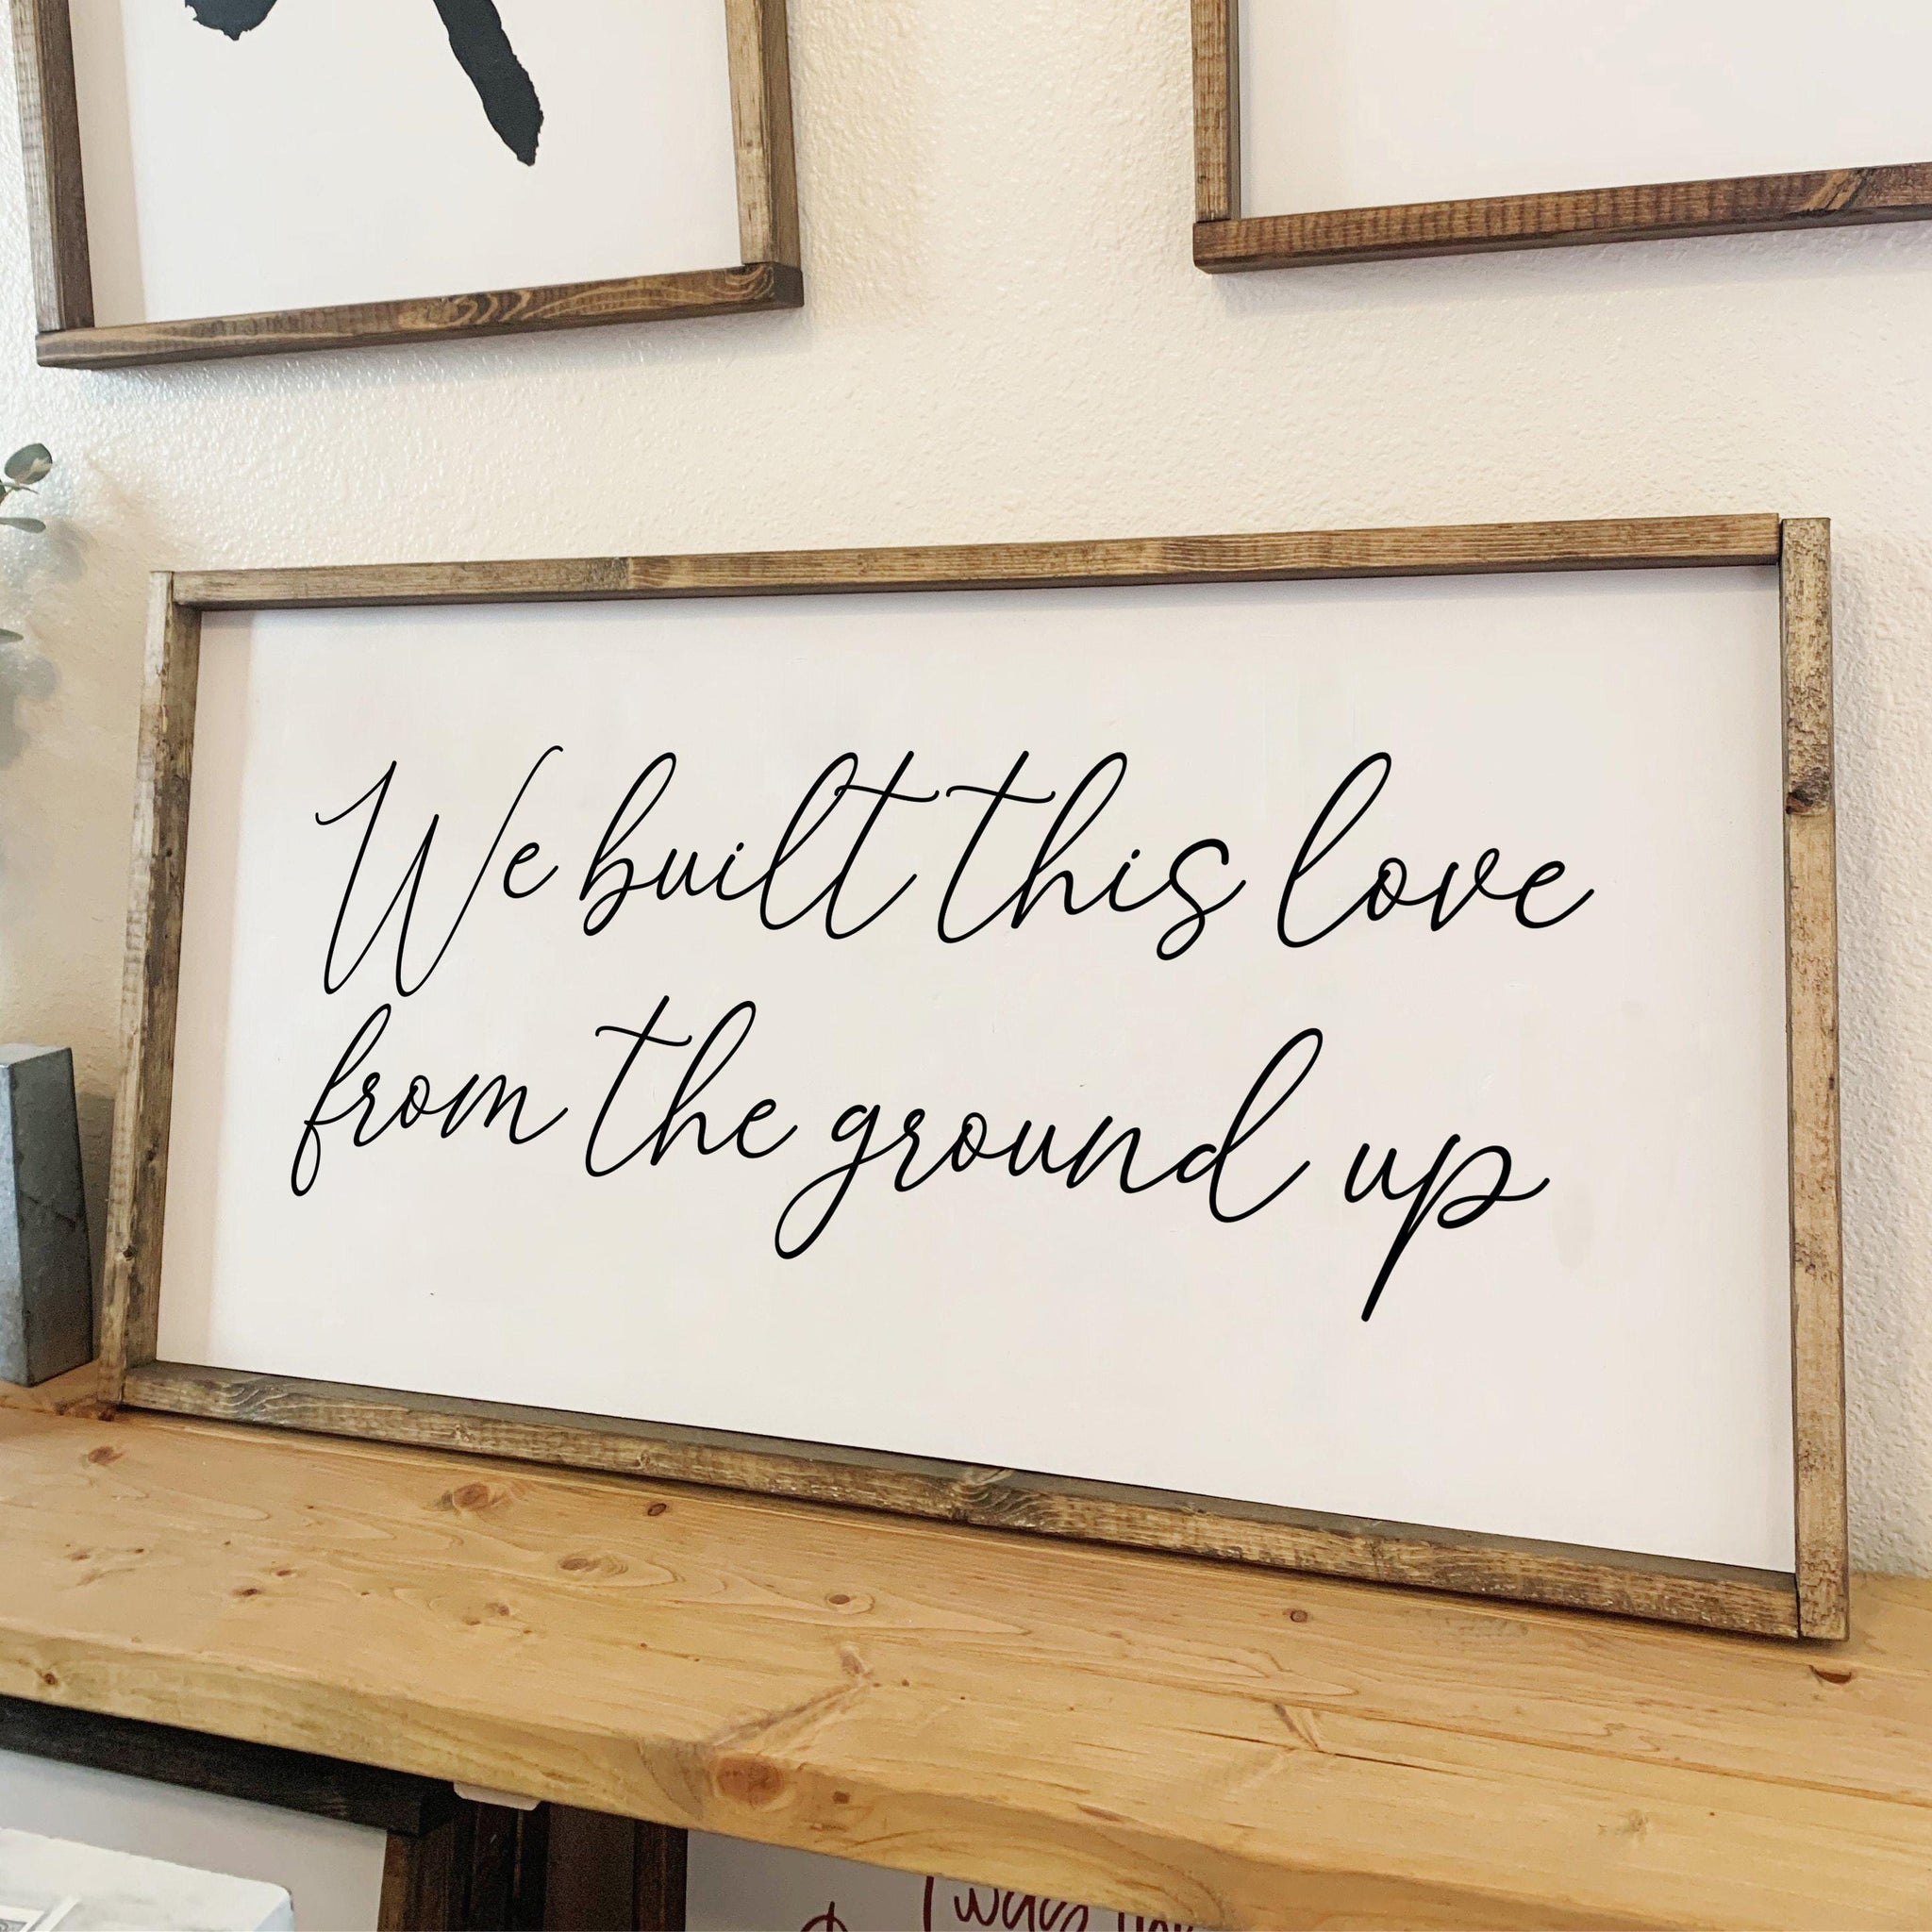 We built this love
from the ground up